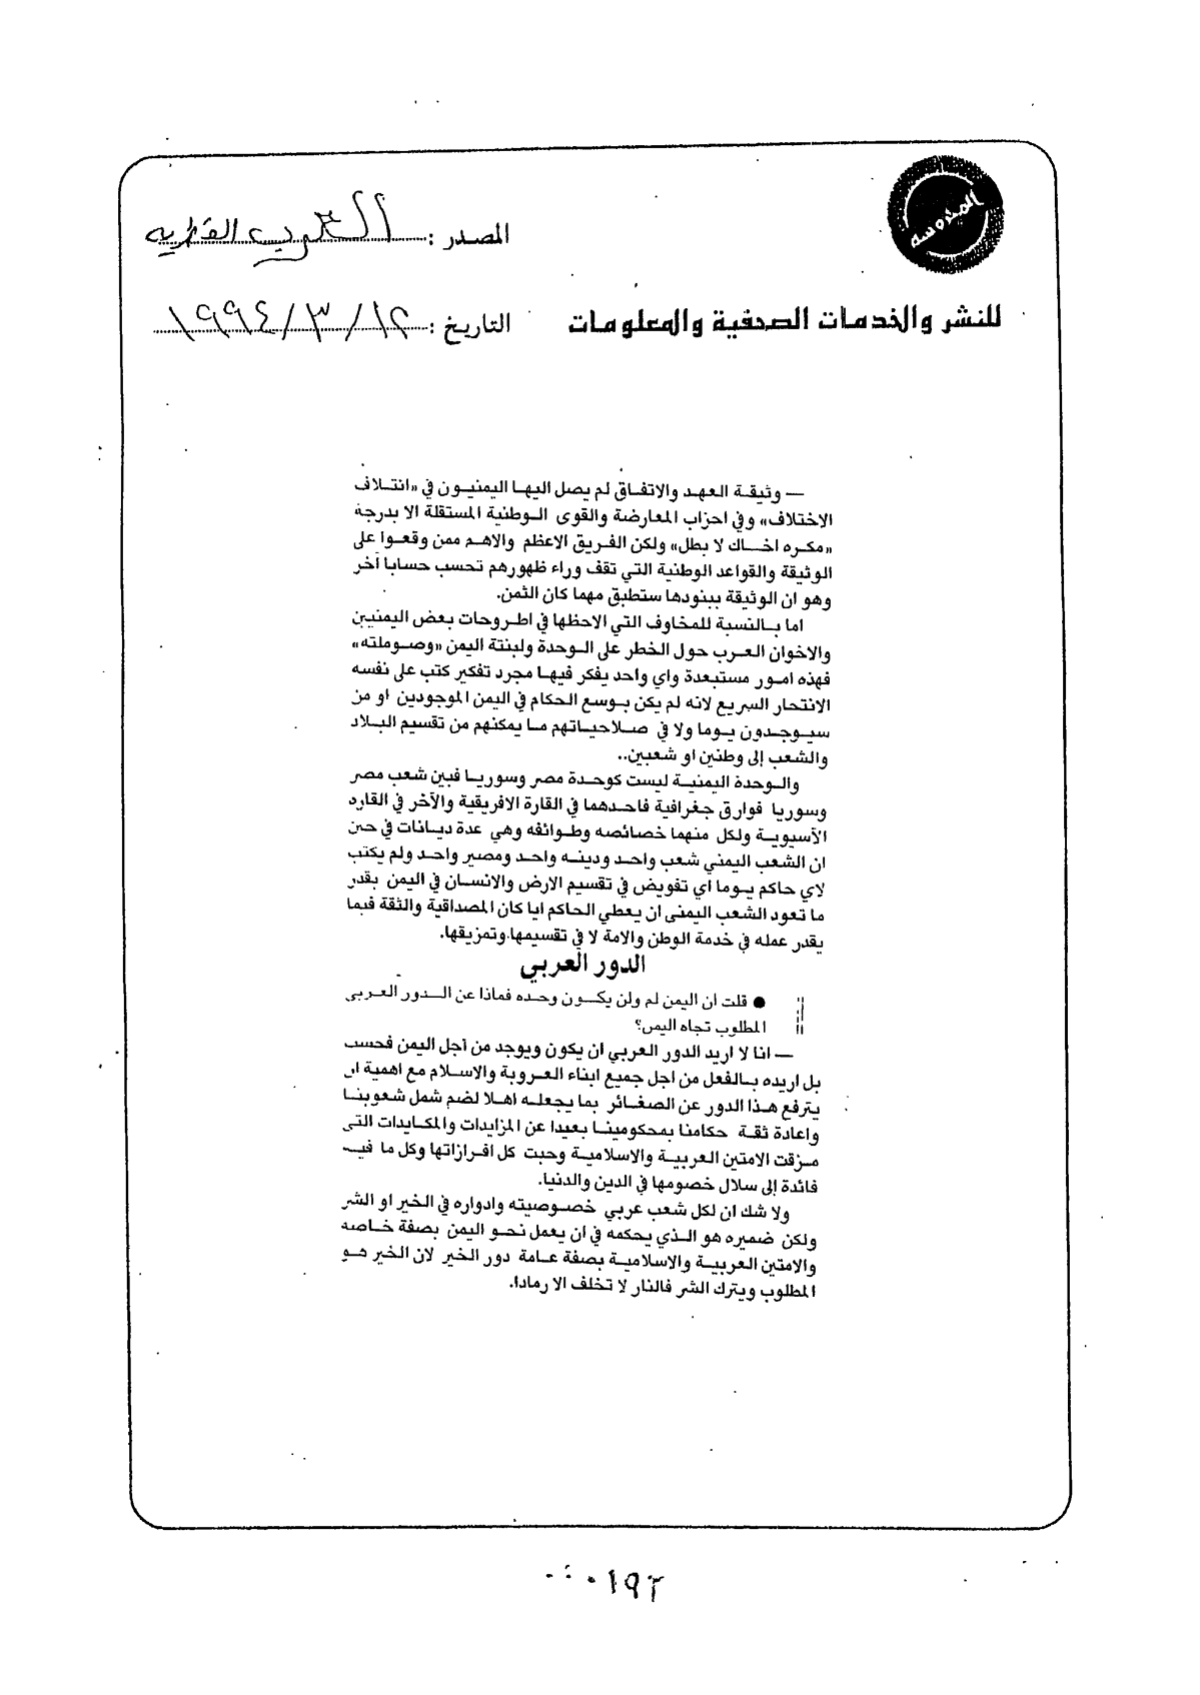 المحروسة
المصدر : العرب القطرية
للنشر والخدمات الصحفية والمعلومات
التاريخ : ١٢ / ٣ / ١٩٩٤
— وثيقة العهد والاتفاق لم يصل اليها اليمنيون في «ائتلاف
الاختلاف» وفي احزاب المعارضة والقوى الوطنية المستقلة الا بدرجة
«مكره اخاك لا بطل» ولكن الفريق الاعظم والاهم ممن وقعوا على
الوثيقة والقواعد الوطنية التي تقف وراء ظهورهم تحسب حسابا آخر
وهو ان الوثيقة ببنودها ستطبق مهما كان الثمن.
اما بالنسبة للمخاوف التي الاحظها في اطروحات بعض اليمنيين
والاخوان العرب حول الخطر على الوحدة ولبننة اليمن «وصوملته»
فهذه امور مستبعدة واي واحد يفكر فيها مجرد تفكير كتب على نفسه
الانتحار السريع لانه لم يكن بوسع الحكام في اليمن الموجودين او من
سيوجدون يوما ولا في صلاحياتهم ما يمكنهم من تقسيم البلاد
والشعب إلى وطنين او شعبين..
والوحدة اليمنية ليست كوحدة مصر وسوريا فبين شعب مصر
وسوريا فوارق جغرافية فاحدهما في القارة الافريقية والآخر في القارة
الآسيوية ولكل منهما خصائصه وطوائفه وهي عدة ديانات في حين
ان الشعب اليمني شعب واحد ودينه واحد ومصير واحد ولم يكتب
لاي حاكم يوما اي تفويض في تقسيم الارض والانسان في اليمن بقدر
ما تعود الشعب اليمنى ان يعطي الحاكم ايا كان المصداقية والثقة فيما
يقدر عمله في خدمة الوطن والامة لا في تقسيمها وتمزيقها.
الدور العربي
● قلت ان اليمن لم ولن يكون وحده فماذا عن الدور العربي
المطلوب تجاه اليمن؟
— انا لا اريد الدور العربي ان يكون ويوجد من أجل اليمن فحسب
بل اريده بالفعل من اجل جميع ابناء العروبة والاسلام مع اهمية ان
يترفع هذا الدور عن الصغائر بما يجعله اهلا لضم شمل شعوبنا
واعادة ثقة حكامنا بمحكومينا بعيدا عن المزايدات والمكايدات التي
مزقت الامتين العربية والاسلامية وحبت كل افرازاتها وكل ما فيه
فائدة إلى سلال خصومها في الدين والدنيا.
ولا شك ان لكل شعب عربي خصوصيته وادواره في الخير او الشر
ولكن ضميره هو الذي يحكمه في ان يعمل نحو اليمن بصفة خاصة
والامتين العربية والاسلامية بصفة عامة دور الخير لان الخير هو
المطلوب ويترك الشر فالنار لا تخلف الا رمادا.
٠١٩٢